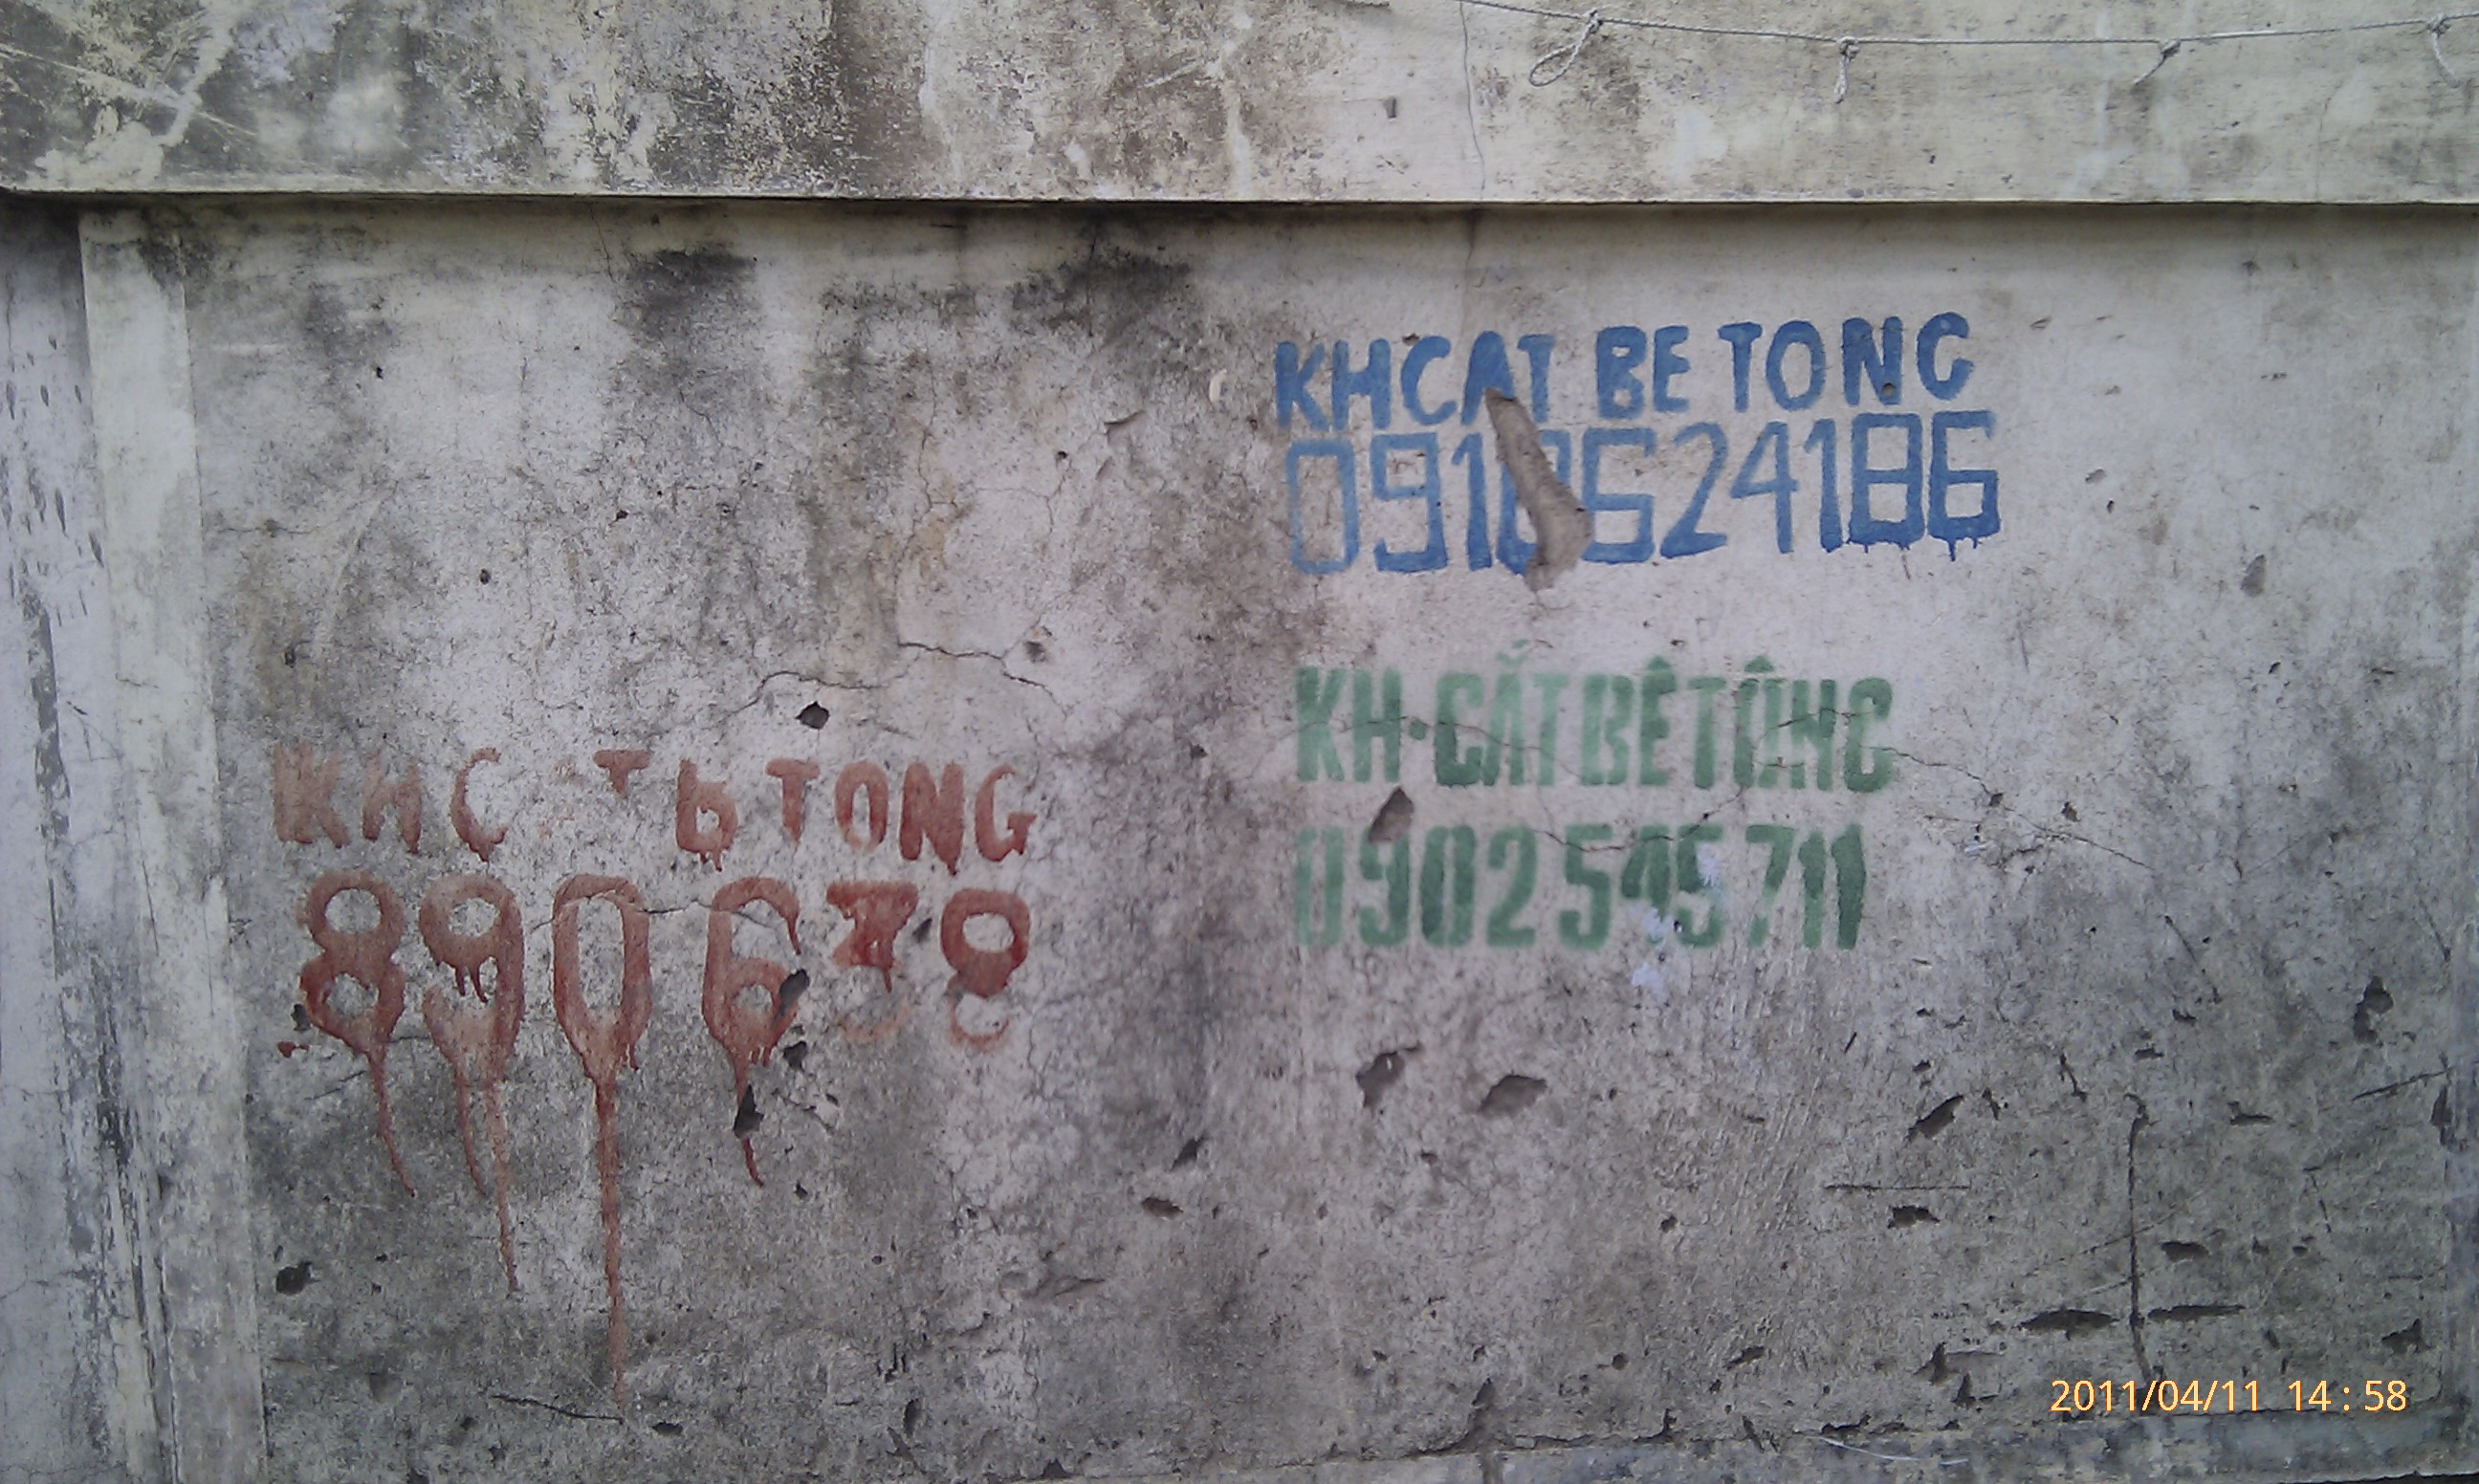 KHCAT BE TONG
0910524186
KH-CẮT BÊ TÔNG
0902 545 711
KH C T b TONG
890638
2011/04/11 14:58